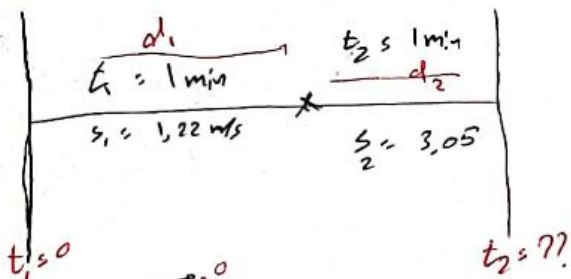 d₁
t₁ = 1 min
s₁ = 1,22 m/s
t₂ = 1 min
d₂
s₂ = 3,05
t₁ = 0
t₂ = ??
0